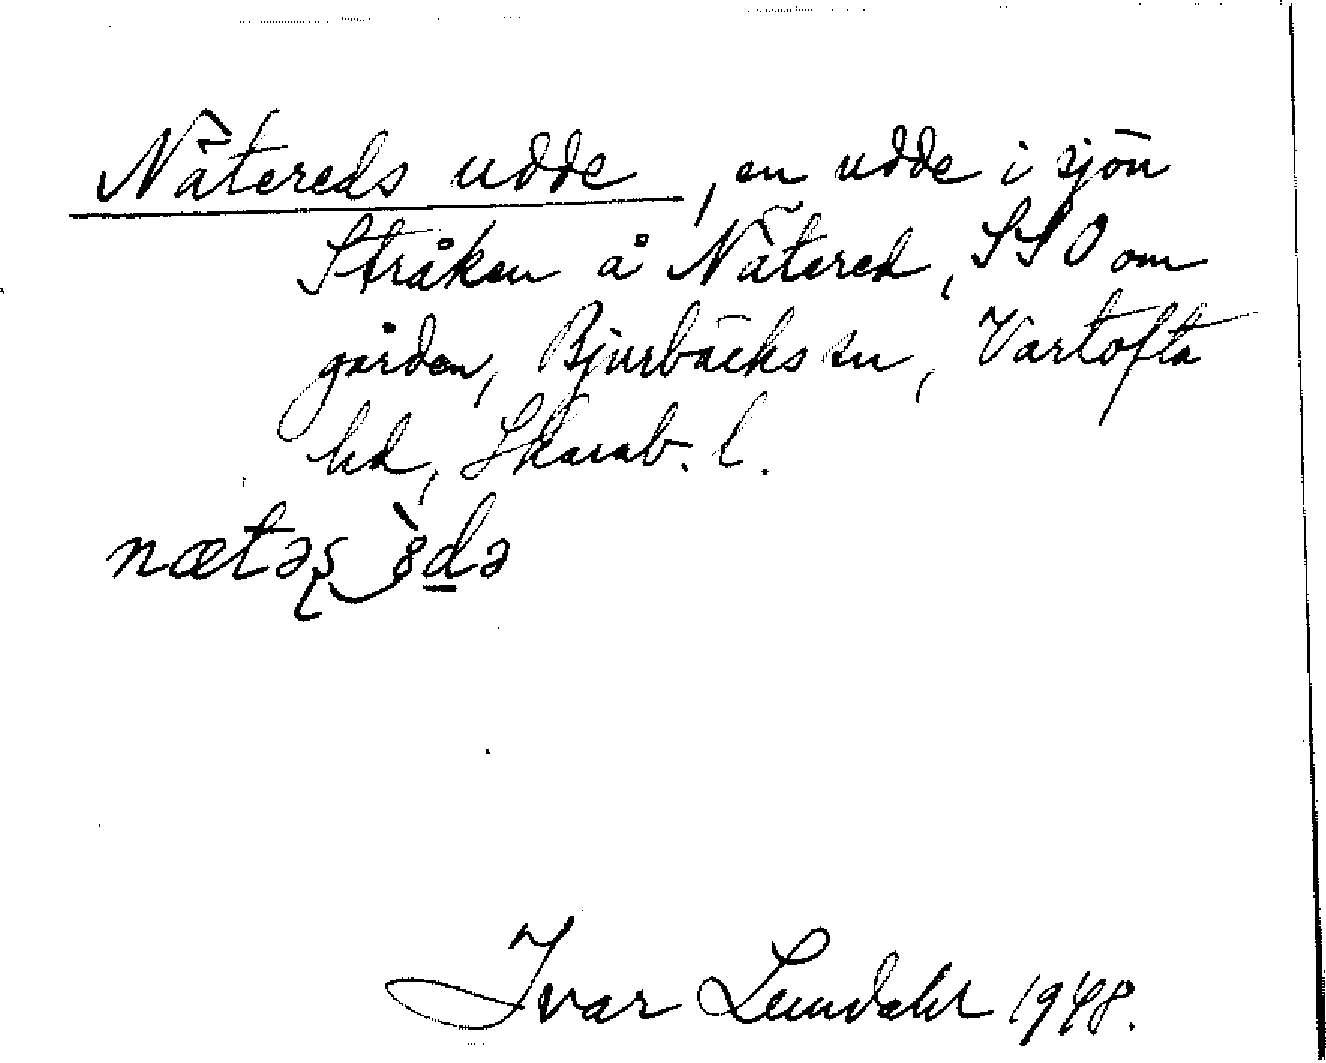 Nätereds udde, en udde i sjön
Stråken å Nätered, SSO om
gården, Bjurbäcks sn, Vartofta
hd, Skarab. l.
nætəʂ ödə
Ivar Lundahl 1948.